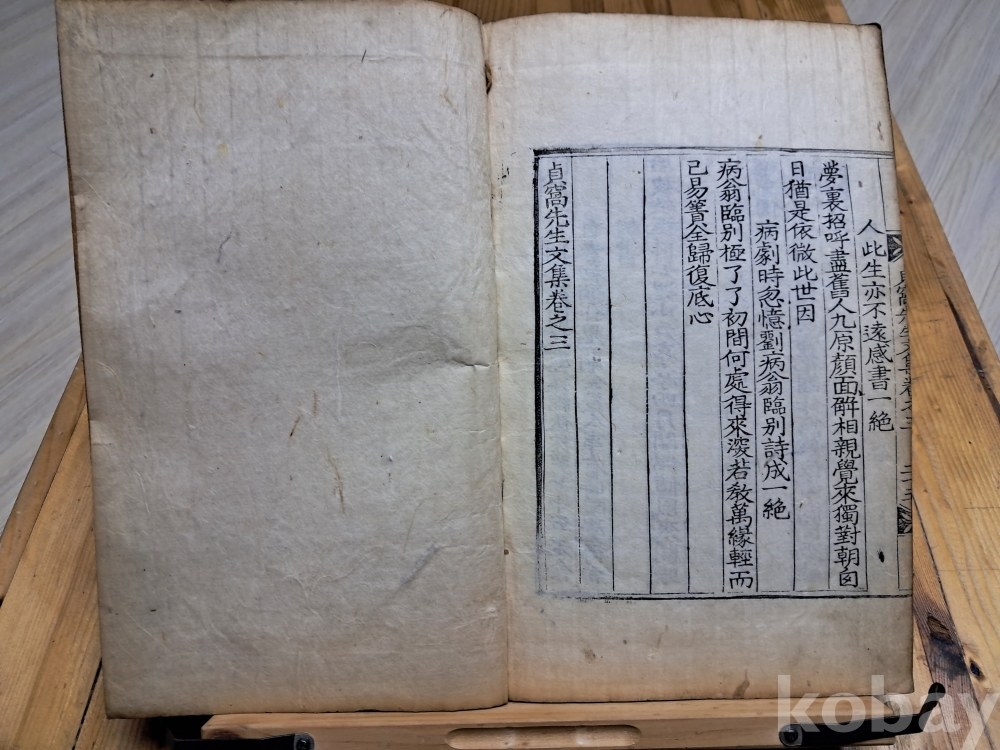 人此生亦不遠感書一絶
夢裏招呼盡舊人九原顔面觧相親覺來獨對朝囱
日猶是依微此世因
病劇時忽憶劉病翁臨別詩成一絶
病翁臨別極了了初間何處得來深若教萬緣輕而
已易簀全歸復底心
貞窩先生文集卷之三
kobay